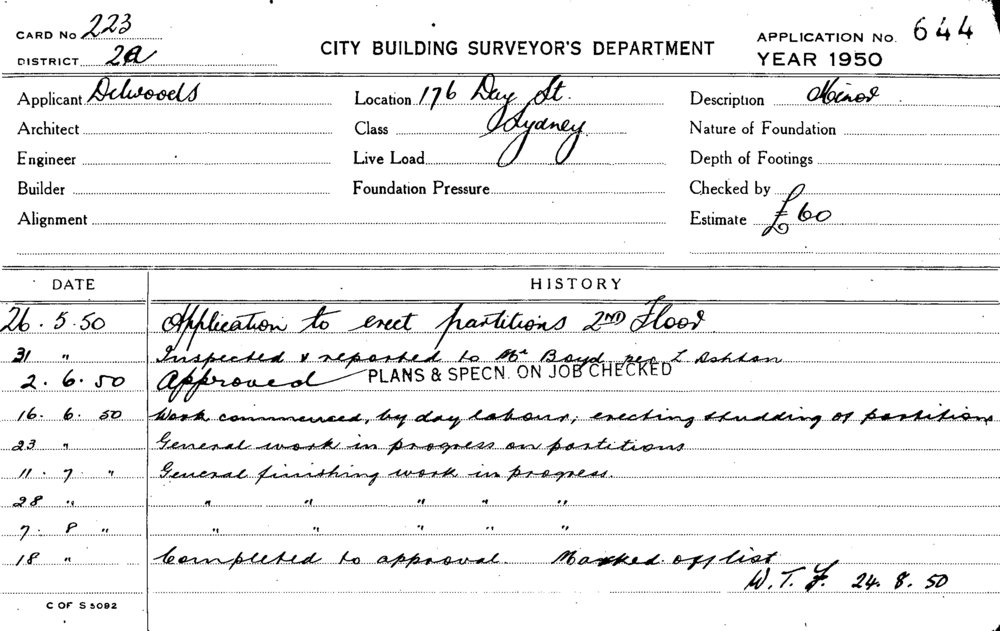 CARD No 223
DISTRICT 2a
CITY BUILDING SURVEYOR'S DEPARTMENT
APPLICATION No. 644
YEAR 1950
Applicant Delwoods
Location 176 Day St.
Description Minor
Architect
Class Sydney
Nature of Foundation
Engineer
Live Load
Depth of Footings
Builder
Foundation Pressure
Checked by
Alignment
Estimate £60
DATE HISTORY
26. 5. 50 Application to erect partitions 2ND Floor
31 " Inspected & reported to Mr Boyd rec L Ashton
2. 6. 50 Approved PLANS & SPECN. ON JOB CHECKED
16. 6. 50 Work commenced, by day labour, erecting studding of partitions
23 " General work in progress on partitions
11. 7. " General finishing work in progress.
28 " " " " " "
7. 8 " " " " " "
18 " Completed to approval. Marked off list
W. T. F. 24. 8. 50
C OF S 5092